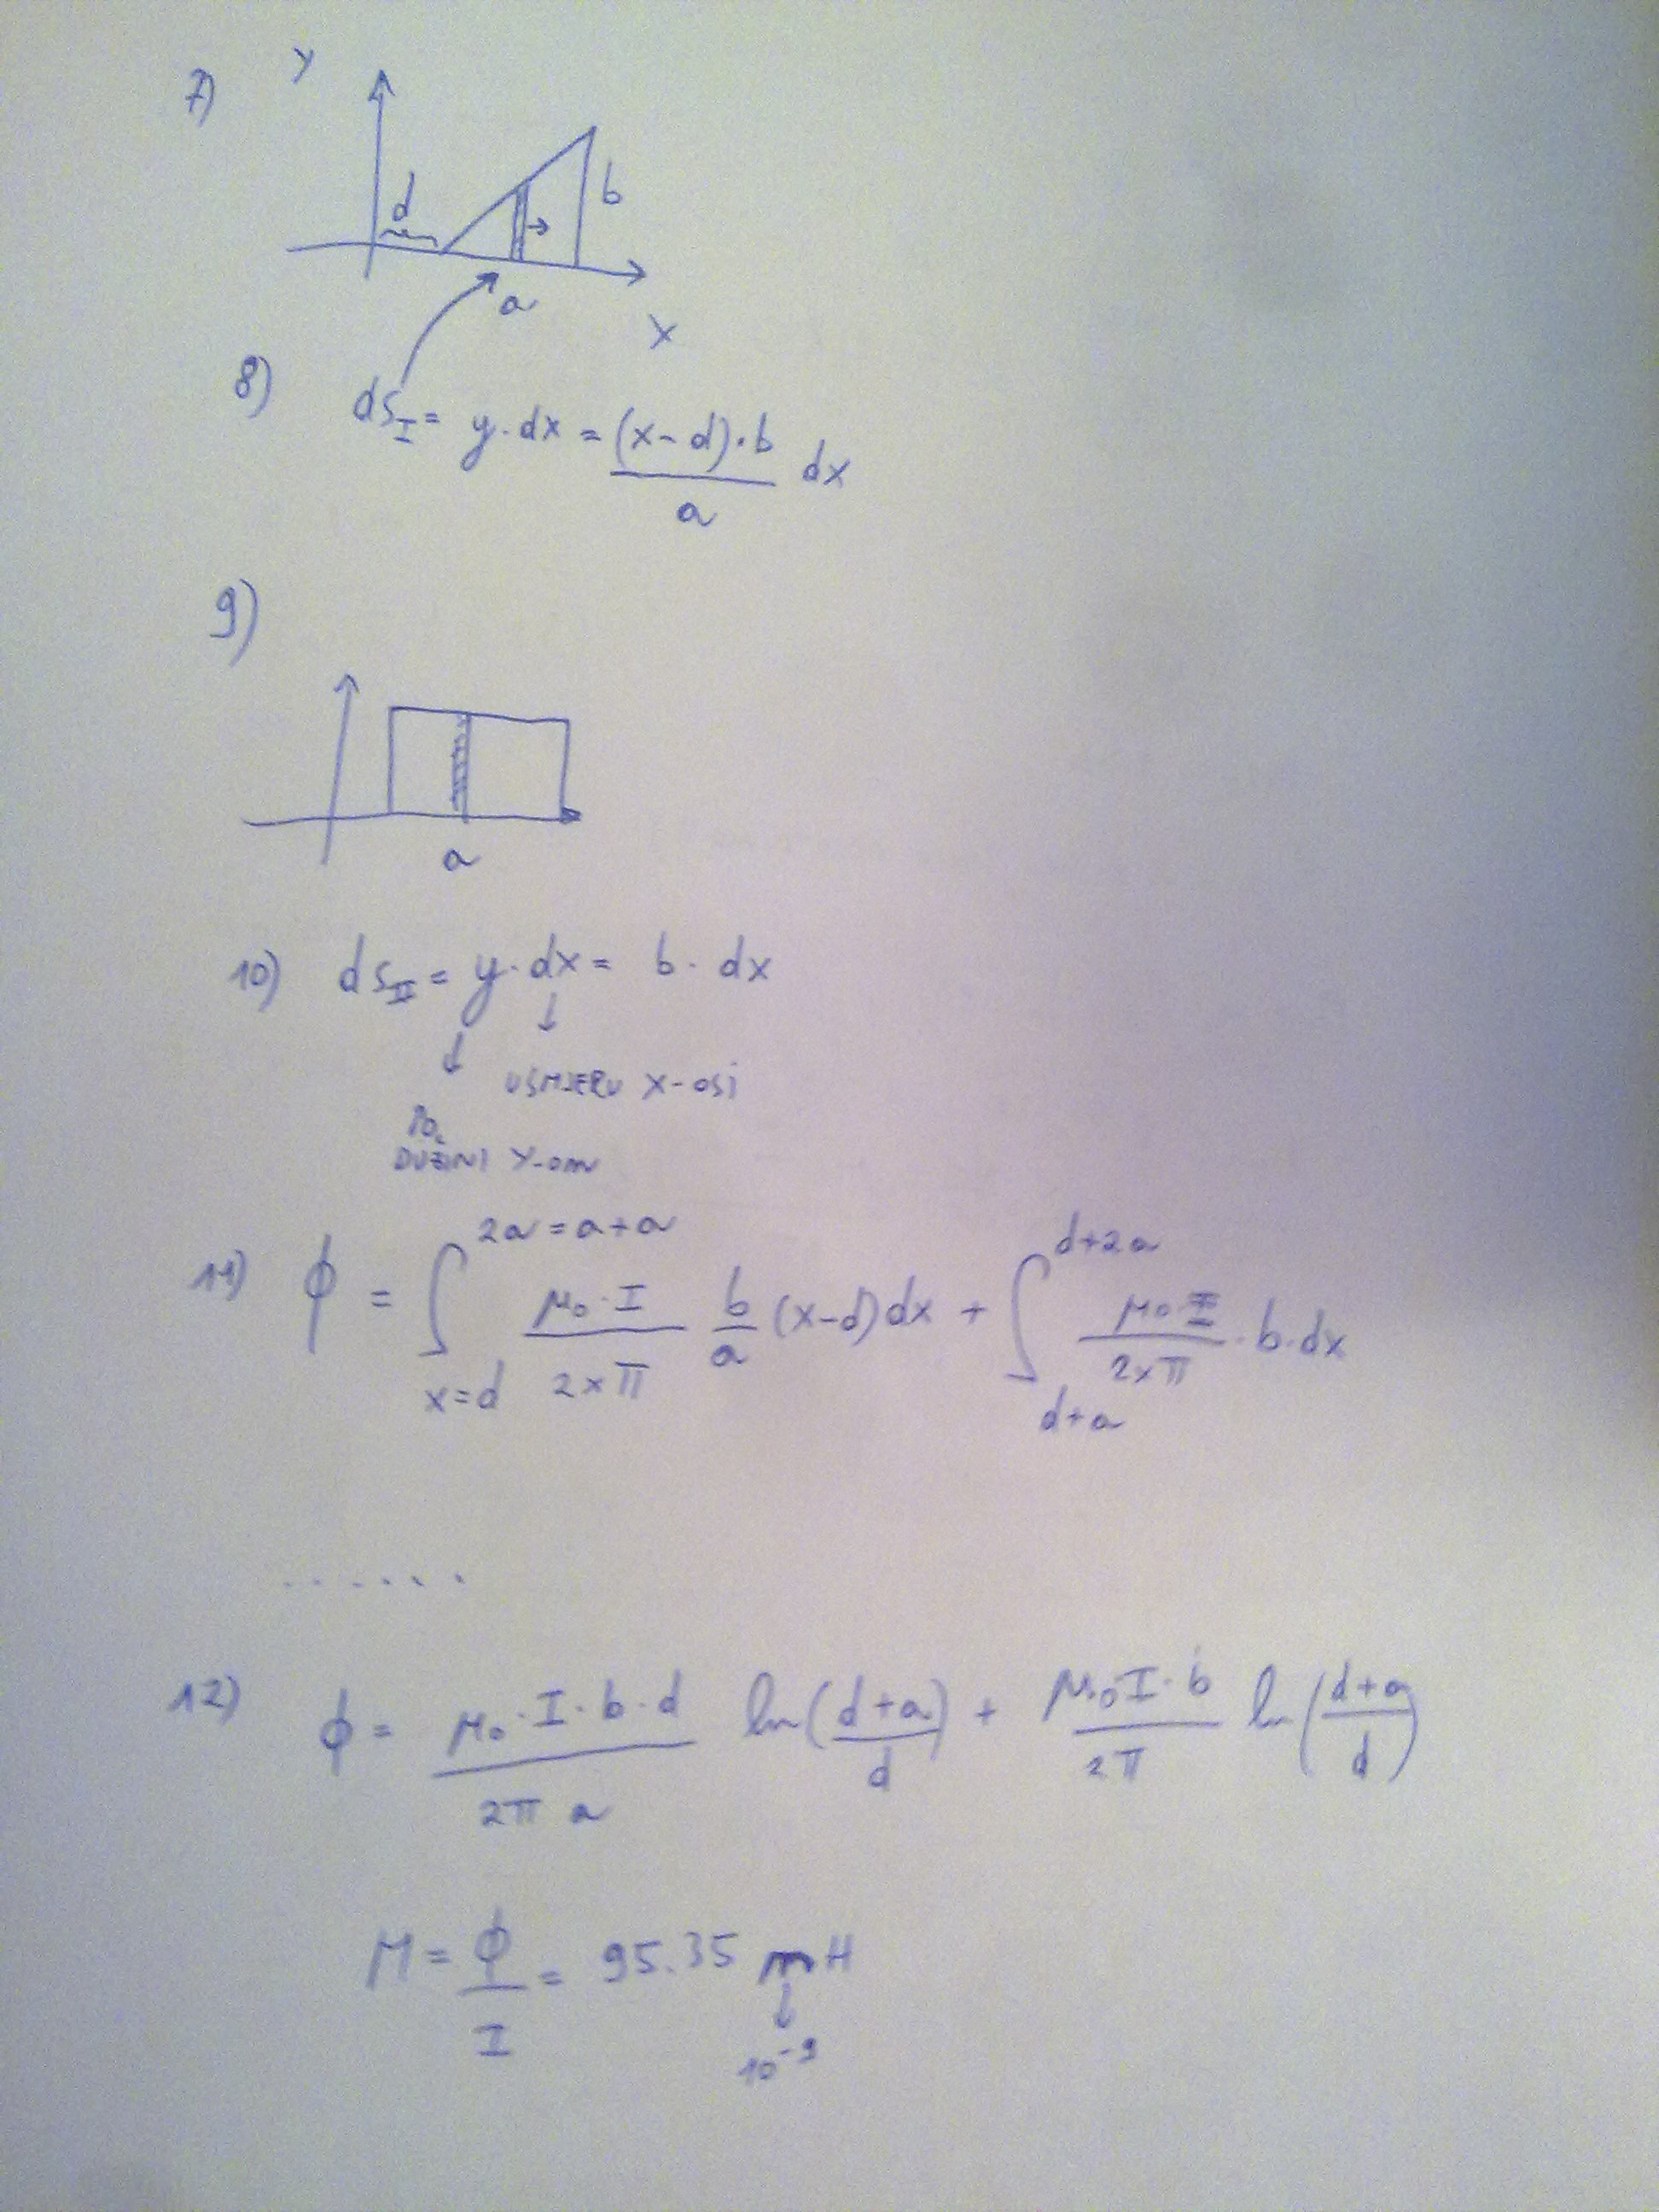 7)
y
d
b
a
x
8) dS_I = y·dx = (x-d)·b / a dx
9)
a
10) dS_II = y·dx = b·dx
↓ ↓
USMJERU X-OSI
PO
DUŽINI Y-om
11) ϕ = ∫_{x=d}^{2a=a+a} μ₀·I / 2xπ b/a (x-d) dx + ∫_{d+a}^{d+2a} μ₀·I / 2xπ · b·dx
. . . . . .
12) ϕ = μ₀·I·b·d / 2π a ln(d+a / d) + μ₀I·b / 2π ln(d+a / d)
M = ϕ / I = 95.35 nH
↓
10⁻⁹